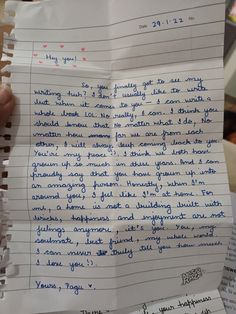 Date 29-1-22
Hey you!
So, you finally got to see my
writing huh? I don't usually like to write
but when it comes to you - I can write a
whole book LOL. No really, I can. I think you
should know that no matter what I do, No
matter how far we are from each
other, I will always keep coming back to you.
You're my peace!! I think we both have
grown up so much in these years. And I can
proudly say that you have grown up into
an amazing person. Honestly, when I'm
around you, I feel like I'm at home. For
me, a home is not a building built with
bricks, happiness and enjoyment are not
feelings anymore, it's you. You, my
soulmate, best friend, my whole world
I can never truly tell you how much
I love you!
Yours,
your happiness